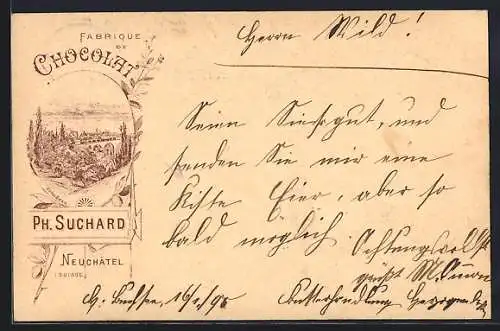 FABRIQUE
DE
CHOCOLAT
PH. SUCHARD
NEUCHÂTEL
(SUISSE)
Herrn Wild!
Seien Sie so gut, und
senden Sie mir eine
Kiste Eier, aber so
bald möglich.
Achtungsvollst
grüßt M.
H. Buchsee, 16/
Butterhandlung